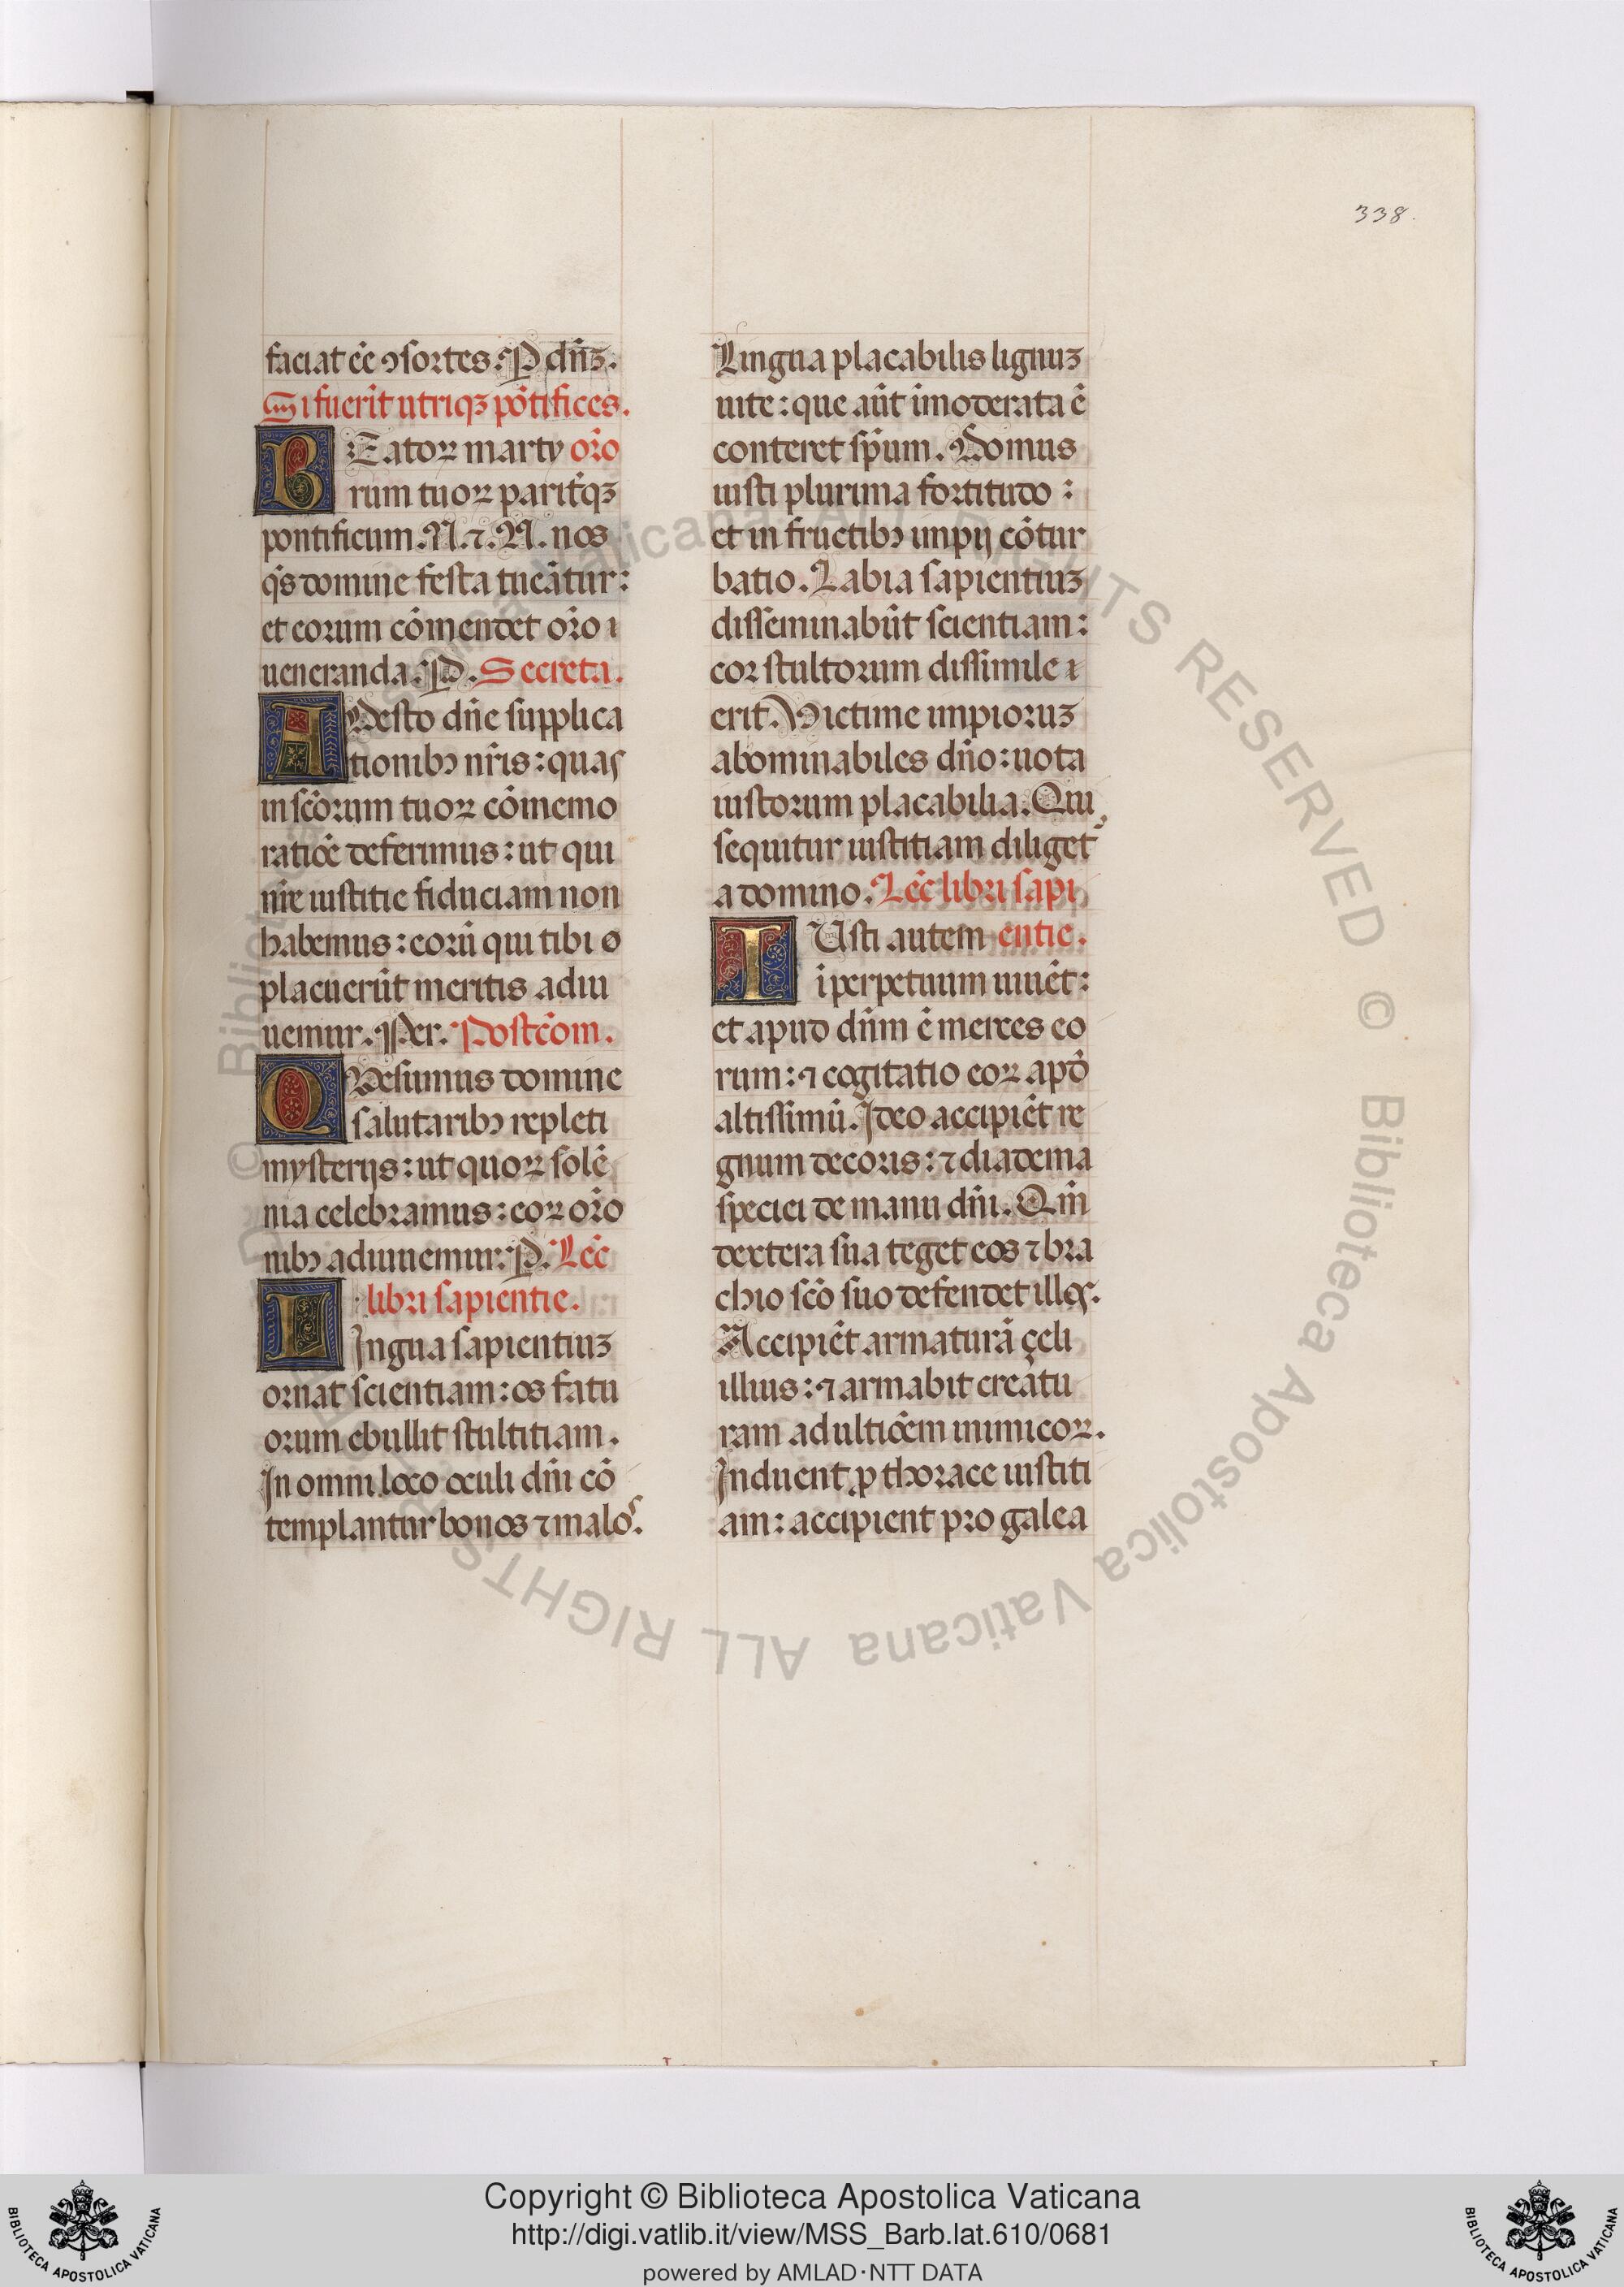 338.
faciat eē ꝯsortes. P dn̄ꝫ.
Si fuerīt utriqꝫ pōtifices.
BEatoꝝ marty or̄o
rum tuoꝝ parit̄qꝫ
pontificum. N. ⁊. N. nos
qs̄ domine festa tueātur:
et eorum cōmendet or̄o ı
ueneranda. P. Secreta.
ADesto dn̄e supplica
tionibꝰ nr̄is: quas
in sc̄orum tuoꝝ cōmemo
ratiōe deferimus: ut qui
nr̄e iustitie fiduciam non
habemus: eorū qui tibi o
placuerūt meritis adiu
uemur. Per. Postcōm.
QVesumus domine
salutaribꝰ repleti
mysterijs: ut quoꝝ solē
nia celebramus: eoꝝ or̄o
nibꝰ adiuuemur. P. Lēc
libri sapientie.
LIngua sapientiuꝫ
ornat scientiam: os fatu
orum ebullit stultitiam.
In omni loco oculi dn̄i cō
templantur bonos ⁊ malos.
Lingua placabilis lignuꝫ
uite: que aūt īmoderata ē
conteret sp̄um. Domus
iusti plurima fortitudo:
et in fructibꝰ impij cōtur
batio. Labia sapientiuꝫ
disseminabūt scientiam:
cor stultorum dissimile ı
erit. Victime impioruꝫ
abominabiles dn̄o: uota
iustorum placabilia. Qui
sequitur iustitiam diliget᷑
a domino. Lēc libri sapi
IUsti autem entie.
ī perpetuum uiuēt:
et apud dn̄m ē merces eo
rum: ⁊ cogitatio eoꝝ apd̄
altissimū. Ideo accipiēt re
gnum decoris: ⁊ diadema
speciei de manu dn̄i. Qm̄
dextera sua teget eos ⁊ bra
chio sc̄o suo defendet illos.
Accipiēt armaturā çeli
illius: ⁊ armabit creātu
ram ad ultiōem inimicoꝝ.
Induent ꝓ thorace iustiti
am: accipient pro galea
© Biblioteca Apostolica Vaticana ALL RIGHTS RESERVED
Copyright © Biblioteca Apostolica Vaticana
http://digi.vatlib.it/view/MSS_Barb.lat.610/0681
powered by AMLAD·NTT DATA
BIBLIOTECA APOSTOLICA VATICANA
BIBLIOTECA APOSTOLICA VATICANA